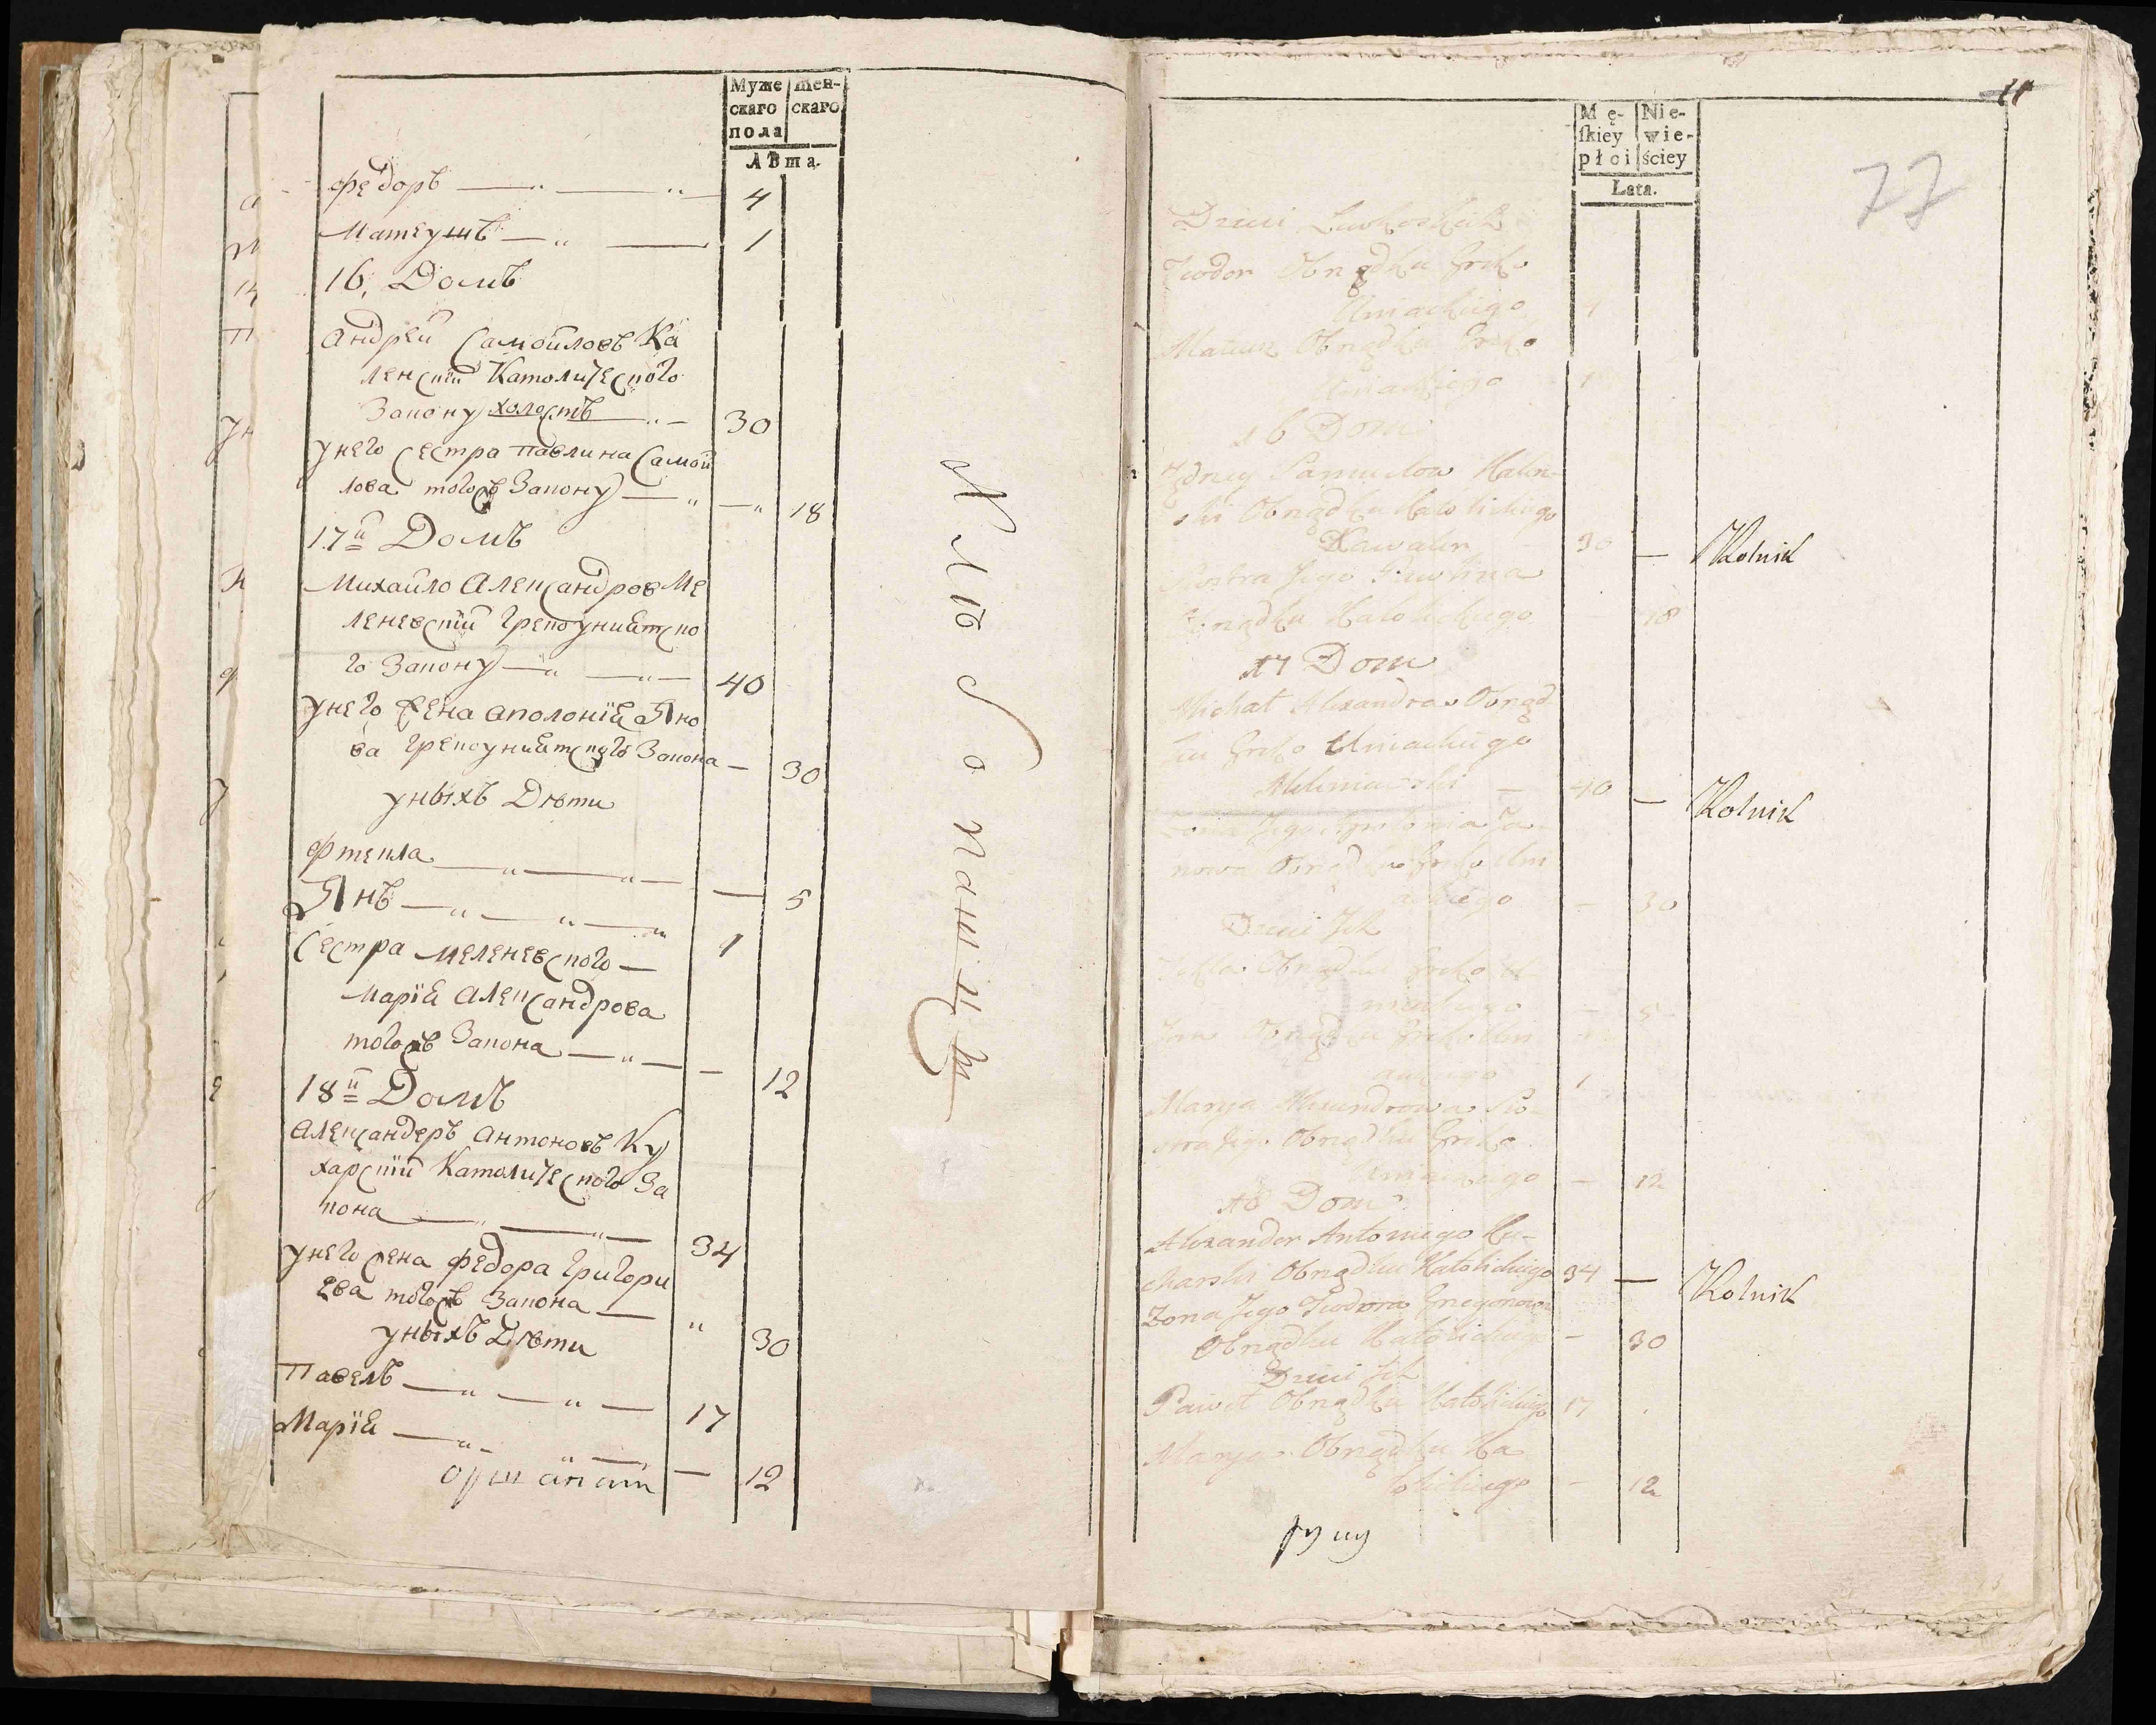 Муже
скаго
пола
Жен-
скаго
Лѣта.
Федоръ — " — " — 4
Матеушъ — " — 1
16, Домъ
Андрей Самойловъ Ка
ленский Католического
Закону холостъ — " — 30
у него сестра Павлина Самой
лова тогожъ Закону — " — " 18
17й Домъ
Михайло Александров Ме
леневский Грекоуниятско
го Закону — " — " — 40
у него жена Аполония Яно
ва Грекоуниятского Закона — 30
у ныхъ Дѣти
Фтекла — " — " — — 5
Янъ — " — " — " 1
Сестра Меленевского —
Мария Александрова
тогожъ Закона — " — — 12
18й Домъ
Александеръ Антоновъ Ку
харский Католического За
кона — " — " — 34
у него жена Федора Григори
ева тогожъ Закона — " 30
у ныхъ Дѣти
Павелъ — " — " — 17
Мария — " — " — — 12
Mę-
ſkiey
płci
Nie-
wie-
ściey
Lata.
11
77
Dzieci
Teodor Obrządku Greko
Uniackiego
Mateusz Obrządku Greko
Uniackiego 1
16 Dom
Andrzey Samuelow Kalen-
ski Obrządku Katolickiego
Kawaler 30 — Rolnik
Siostra Jego Pawlina
Obrządku Katolickiego 18
17 Dom
Michał Alexandrow Obrząd
ku Greko Uniackiego
Meleniewski — 40 — Rolnik
Żona Jego Apolonia Ja
nowa Obrządku Greko Uni
ackiego — 30
Dzieci Ich
Tekla Obrządku Greko U
niackiego — 5
Jan Obrządku Greko Uni
ackiego 1
Marya Alexandrowa Sio-
stra Jego Obrządku Greko
Uniackiego — 12
18 Dom
Alexander Antoniego Ku-
charski Obrządku Katolickiego 34 — Rolnik
Zona Jego Teodora Gregorowa
Obrządku Katolickiego — 30
Dzieci Ich
Paweł Obrządku Katolickiego 17
Marya Obrządku Ka
tolickiego — 12
руку